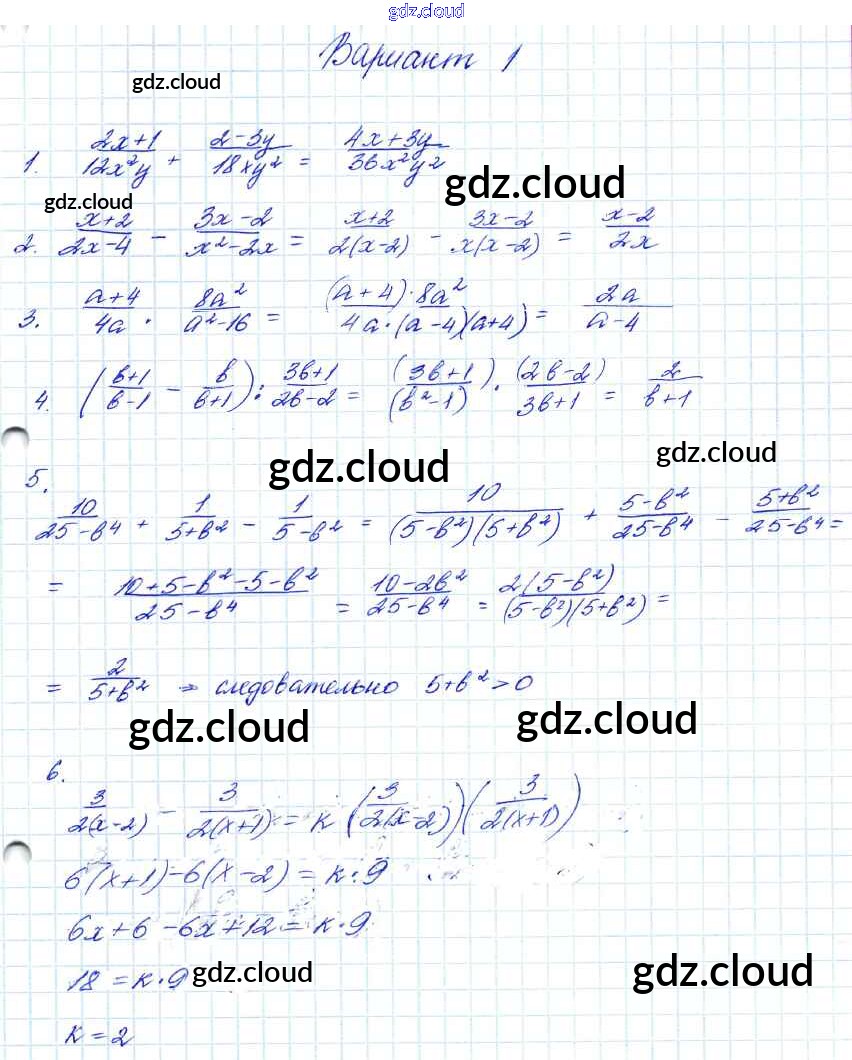 gdz.cloud
Вариант 1
gdz.cloud
1. (2x+1)/(12x²y) + (2-3y)/(18xy²) = (4x+3y)/(36x²y²)
gdz.cloud
gdz.cloud
2. (x+2)/(2x-4) - (3x-2)/(x²-2x) = (x+2)/(2(x-2)) - (3x-2)/(x(x-2)) = (x-2)/(2x)
3. (a+4)/(4a) · (8a²)/(a²-16) = ((a+4)·8a²)/(4a·(a-4)(a+4)) = (2a)/(a-4)
4. ((b+1)/(b-1) - b/(b+1)) : (3b+1)/(2b-2) = ((3b+1)/(b²-1)) · (2b-2)/(3b+1) = 2/(b+1)
gdz.cloud
gdz.cloud
5.
10/(25-b⁴) + 1/(5+b²) - 1/(5-b²) = 10/((5-b²)(5+b²)) + (5-b²)/(25-b⁴) - (5+b²)/(25-b⁴) =
= (10+5-b²-5-b²)/(25-b⁴) = (10-2b²)/(25-b⁴) = (2(5-b²))/((5-b²)(5+b²)) =
= 2/(5+b²) ⇒ следовательно 5+b²>0
gdz.cloud
gdz.cloud
6.
3/(2(x-2)) - 3/(2(x+1)) = к (3/(2(x-2)))(3/(2(x+1)))
6(x+1)-6(x-2) = к·9
6x+6-6x+12 = к·9
18 = к·9
gdz.cloud
gdz.cloud
к = 2